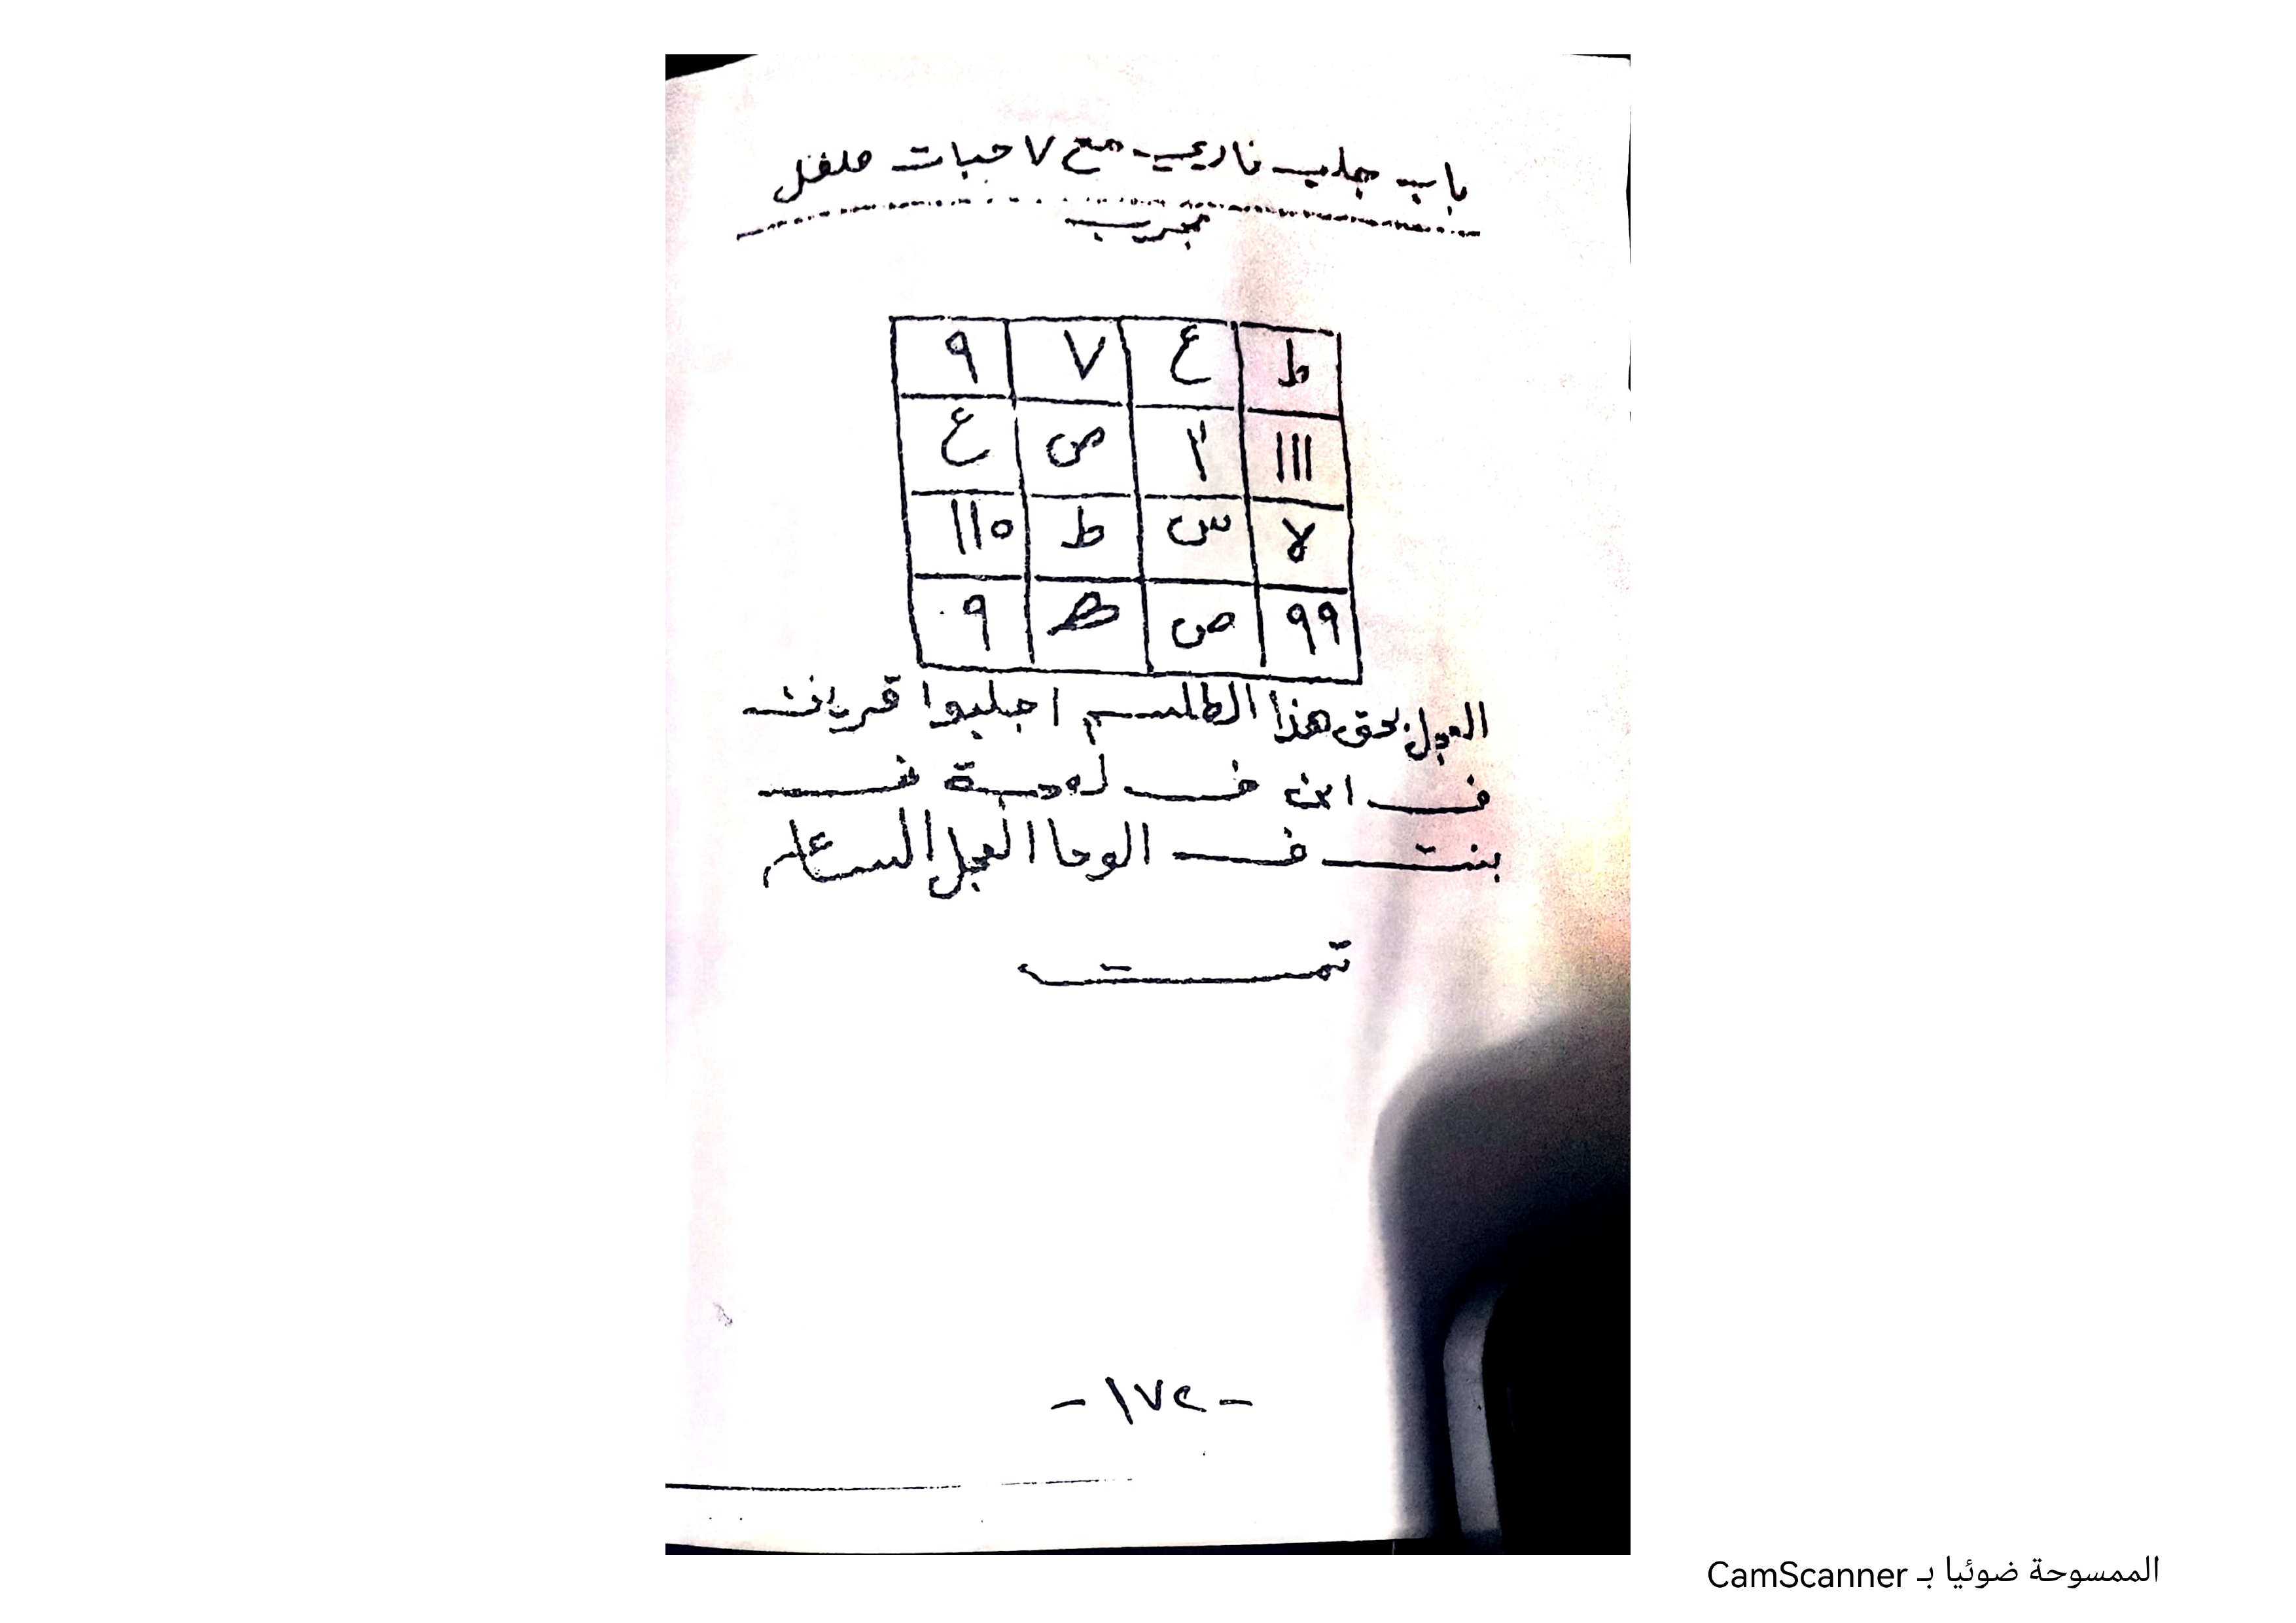 باب جلب ناري مع ٧ حبات فلفل
مجرب
ط ع ٧ ٩
١١١ أ ص ع
لا س ط ١١٥
٩٩ ص ط ٩
العجل بحق هذا الطلسم اجلبوا قرين
ف ابن ف لمحبة ف
بنت ف الوحا العجل الساعة
تمت
- ١٧٢ -
الممسوحة ضوئيا بـ CamScanner